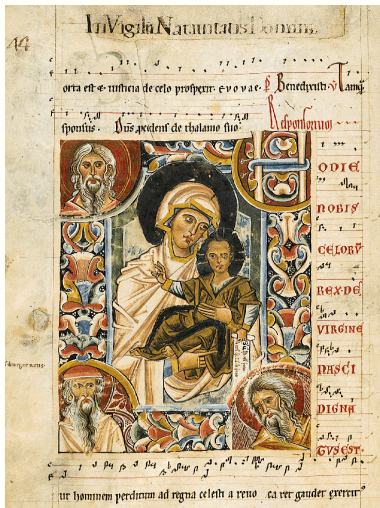 In Vigilia Natiuitatis Domini
44
orta est & iusticia de celo prospexit. e v o v a e. Benedixisti. Tamq
sponsus. Dns pcedens de thalamo suo.
ODIE
NOBIS
CELORV
REX DE
VIRGINE
NASCI
DIGNA
TVS EST
ut hominem perditum ad regna celesti a reuo ca ret gaudet exercit